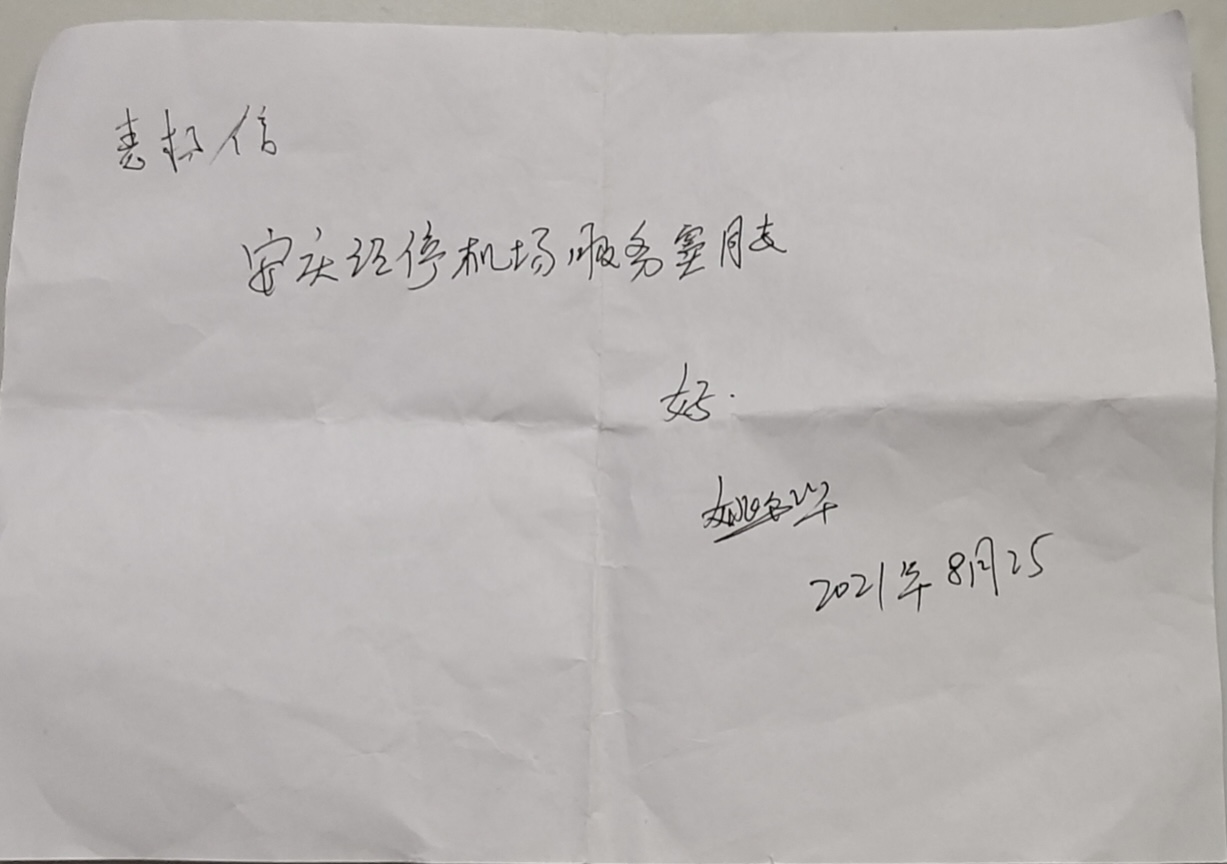 表扬信
安庆经停机场服务窦月友
好.
2021年8月25